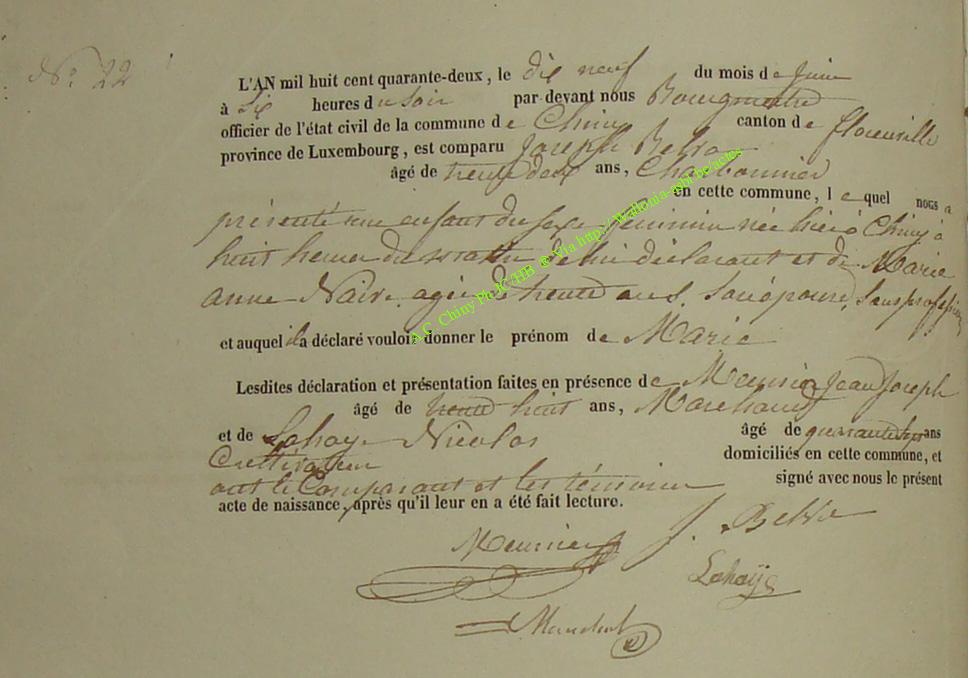 N° 22
L'AN mil huit cent quarante-deux, le dix neuf du mois de Juin
à Six heures du Soir par-devant nous Bourgmestre
officier de l'état civil de la commune de Chiny canton de florenville
province de Luxembourg, est comparu Joseph
âgé de trente deux ans, Charbonnier
en cette commune, lequel nous a
présenté une enfant du sexe féminin née hier à Chiny a
huit heures du matin de lui déclarant et de Marie
anne agée de trente ans, Son épouse, Sans profession
et auquel il a déclaré vouloir donner le prénom de Marie
Lesdites déclaration et présentation faites en présence de Meunier Jean Joseph
âgé de trente huit ans, Marchand
et de Lahaye Nicolas âgé de ans
Cultivateur domiciliés en cette commune, et
ont le Comparant et les témoins signé avec nous le présent
acte de naissance, après qu'il leur en a été fait lecture.
Meunier J.
Lahaye
A.C. Chiny Ph.JCHB & Via http://wallonia-asbl.be/actes